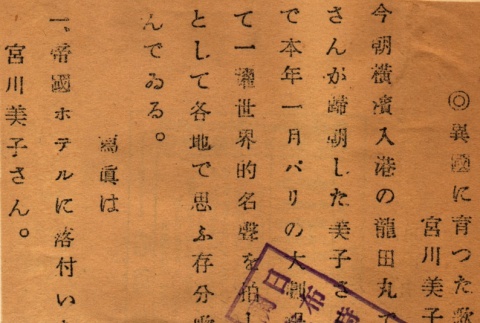 ◎異國に育つた歌
宮川美子
今朝横濱入港の龍田丸で
さんが歸朝した美子さ
で本年一月パリの大劇場
て一躍世界的名聲を拍し
として各地で思ふ存分歌
んでゐる。
寫眞は
一。帝國ホテルに落付いた
宮川美子さん。
日布時